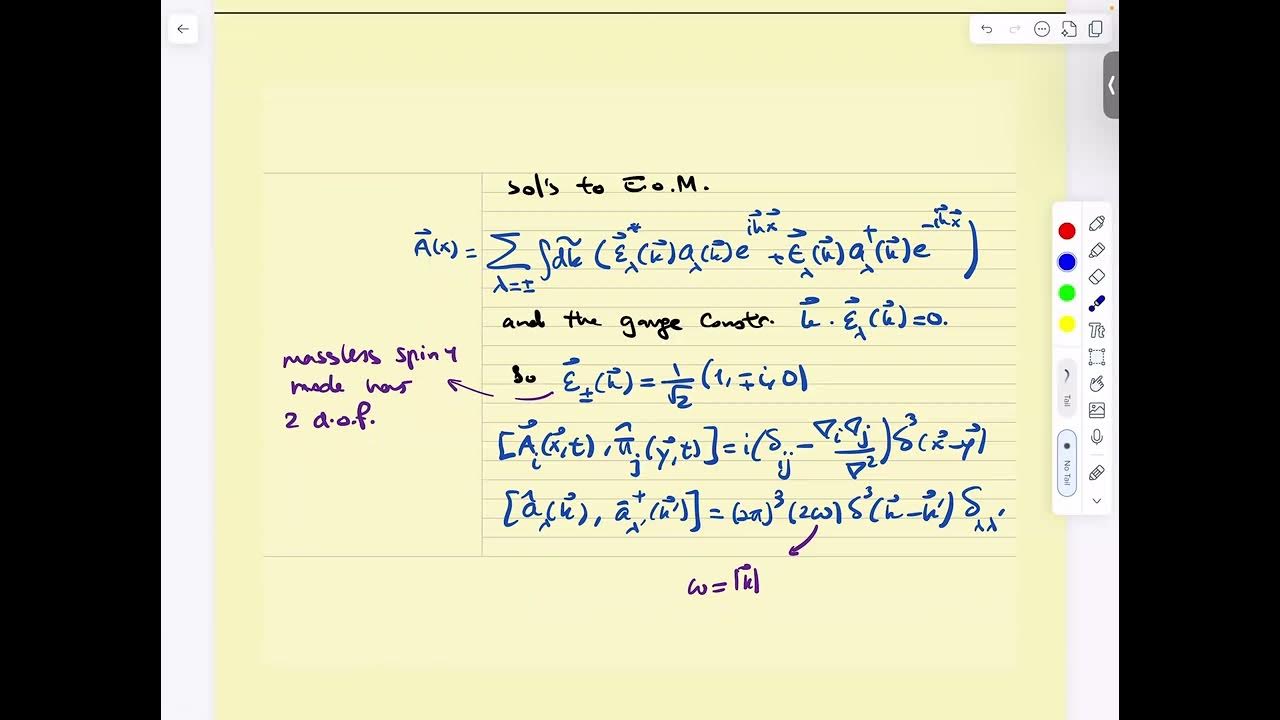 sol's to E.o.M.
A⃗(x) = ∑_{λ=±} ∫ d̃k ( ε⃗*_λ(k⃗) a_λ(k⃗) e^{ik⃗x⃗} + ε⃗_λ(k⃗) a†_λ(k⃗) e^{-ik⃗x⃗} )
and the gauge constr. k⃗ · ε⃗_λ(k⃗) = 0.
massless spin 1
mode has
2 d.o.f.
So ε⃗_±(k⃗) = 1/√2 (1, ∓i, 0)
[A⃗_i(x⃗,t), π̂_j(y⃗,t)] = i(δ_ij − ∇_i∇_j/∇²) δ³(x⃗−y⃗)
[â_λ(k⃗), â†_λ'(k⃗')] = (2π)³ (2ω) δ³(k⃗−k⃗') δ_λλ'
ω = |k⃗|
Tt
Tail
No Tail